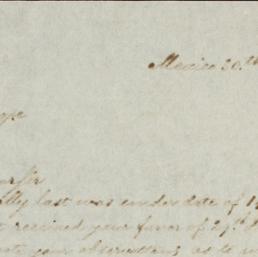 Mexico 30th
Sir
My last was under date of 1
received your favor of 29th
your observations as to